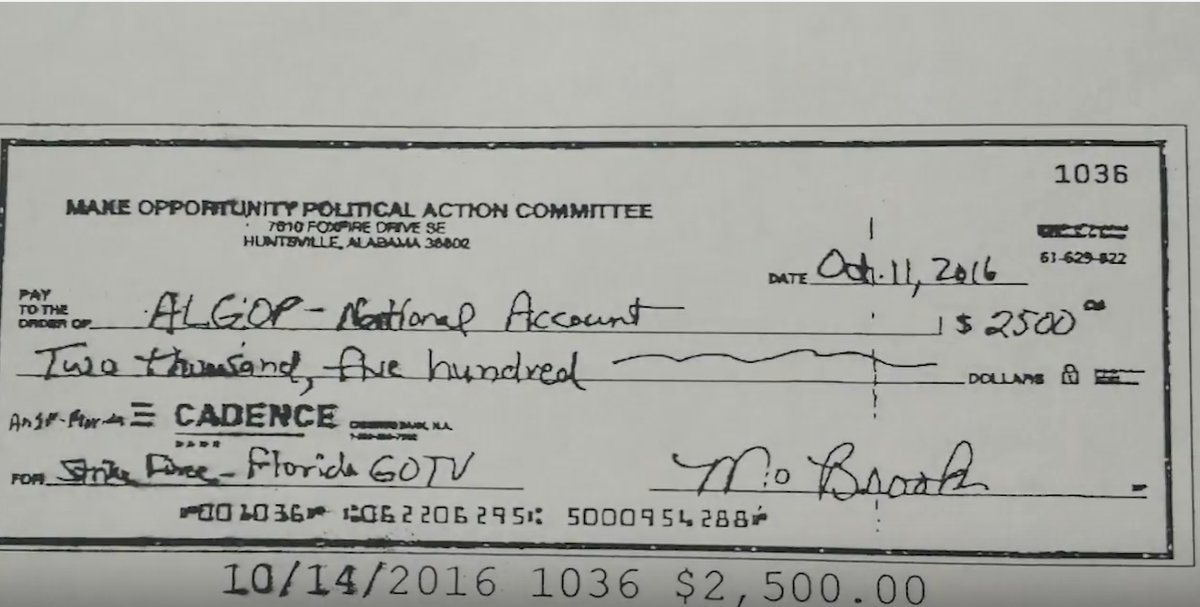 1036
MAKE OPPORTUNITY POLITICAL ACTION COMMITTEE
7610 FOXFIRE DRIVE SE
HUNTSVILLE, ALABAMA 35802
61-629-822
DATE Oct. 11, 2016
PAY
TO THE
ORDER OF ALGOP - National Account $ 2500
Two thousand, five hundred DOLLARS
CADENCE
BANK
FOR Strike Force - Florida GOTV Mo Brooks
10/14/2016 1036 $2,500.00